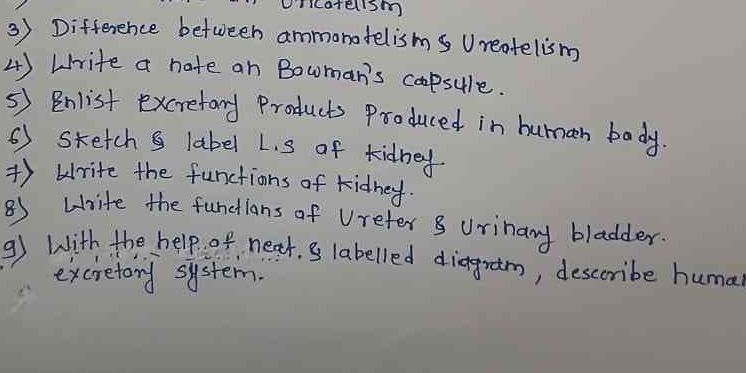 Uricotelism
3) Difference between ammonotelism & Ureotelism
4) Write a note on Bowman's capsule.
5) Enlist Excretory Products Produced in human body.
6) Sketch & label L.S of kidney.
7) Write the functions of kidney.
8) Write the functions of Ureter & Urinary bladder.
9) With the help of neat & labelled diagram, describe human
excretory system.